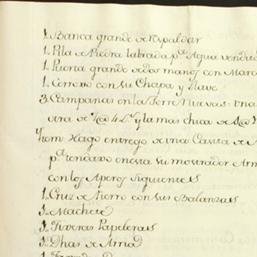 1. Banca grande de Espaldar
1. Pila de Piedra labrada pa. Agua vendita
1. Puerta grande de dos manos con Marco
1. Cerrojo con su Chapa, y llave
3. Campanas en la Torre Nuevas: una
otra de 4 y la mas chica de
Ytom. Hago entrego de una Casita de
pa. en esta su mostrador
con los Aperos Siguientes
1. Cruz de Fierro con sus Balanzas
1. Machete
3. Tixeras Papeleras
2. Dhas. de